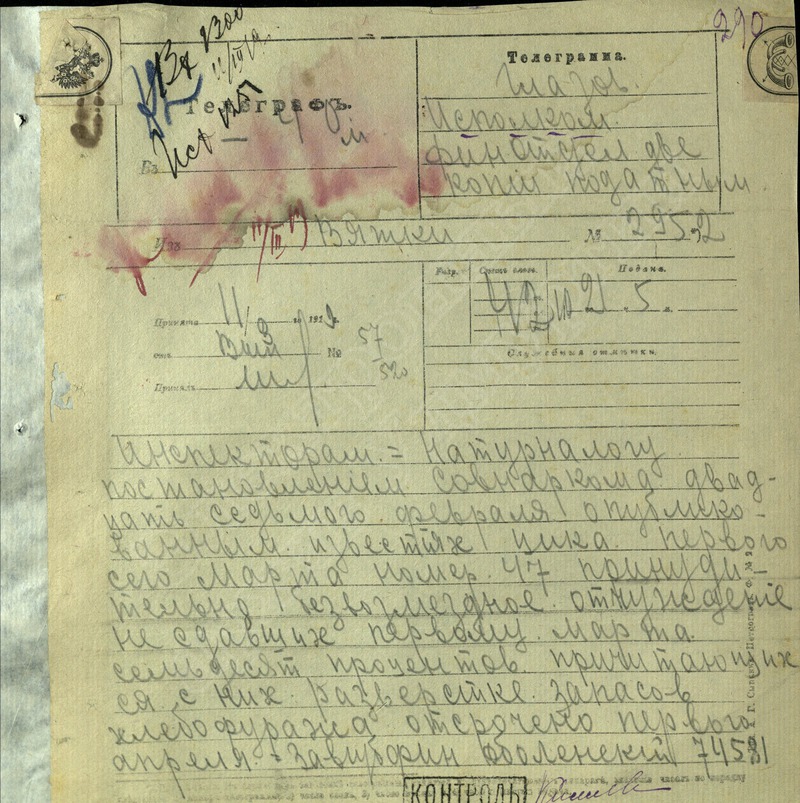 290
Вх 1300
11/III 19
Исх 1125
Телеграфъ.
Въ
Телеграмма.
Глазов.
Исполком.
финотдел две
копии податным
Изъ Вятки № 2952
11/III 19
Разр. Счетъ словъ. Подана.
42 10 21 ч. 5 м.
Принята 11/3 191 9 г.
отъ Вят № 57
520
Принялъ
Служебныя отмѣтки.
Инспекторам. = Натурналогу
постановлением совнаркома двад-
цать седьмого февраля опублико-
ванным известиях цика первого
сего марта номер 47 принуди-
тельно безвозмездное отчуждение
не сдавших первому марта
семьдесят процентов причитающих
ся с них разверстке запасов
хлебофуража отсрочено первого
апреля = Завгубфин Оболенский 74581
КОНТРОЛЬ